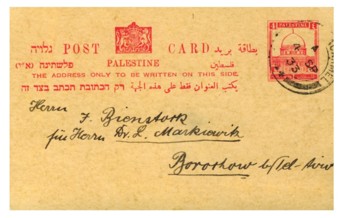 גלויה POST CARD بطاقة بريد
פלשתינה (א״י) PALESTINE فلسطين
THE ADDRESS ONLY TO BE WRITTEN ON THIS SIDE.
רק הכתובת תכתב בצד זה يكتب العنوان فقط على هذه الجهة
PALESTINE
4 4
Herrn J. Bienstock
für Herrn Dr. L. Markiewitz
Borochow b/Tel-Aviv